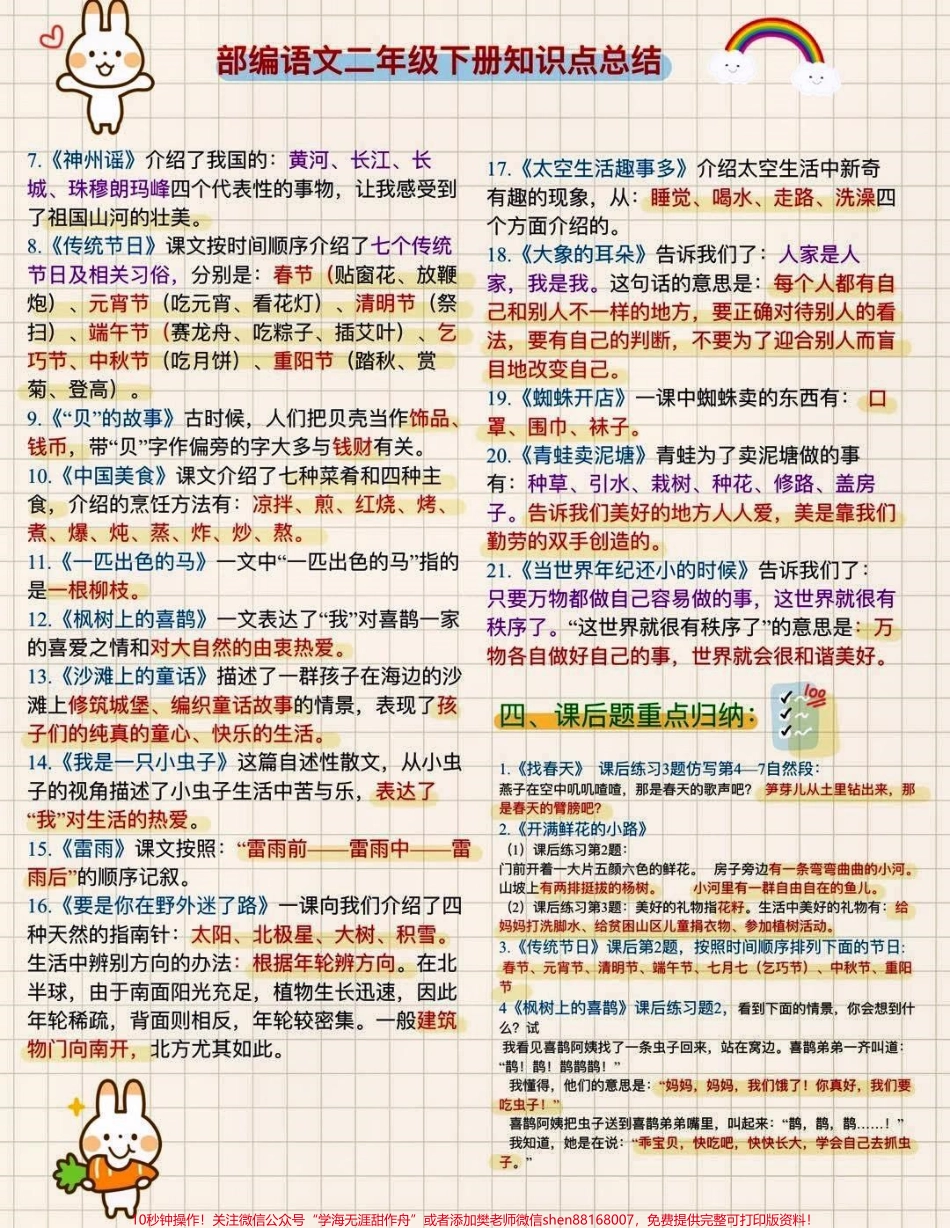 部编语文二年级下册知识点总结
7.《神州谣》介绍了我国的：黄河、长江、长
城、珠穆朗玛峰四个代表性的事物，让我感受到
了祖国山河的壮美。
8.《传统节日》课文按时间顺序介绍了七个传统
节日及相关习俗，分别是：春节（贴窗花、放鞭
炮）、元宵节（吃元宵、看花灯）、清明节（祭
扫）、端午节（赛龙舟、吃粽子、插艾叶）、乞
巧节、中秋节（吃月饼）、重阳节（踏秋、赏
菊、登高）。
9.《“贝”的故事》古时候，人们把贝壳当作饰品、
钱币，带“贝”字作偏旁的字大多与钱财有关。
10.《中国美食》课文介绍了七种菜肴和四种主
食，介绍的烹饪方法有：凉拌、煎、红烧、烤、
煮、爆、炖、蒸、炸、炒、熬。
11.《一匹出色的马》一文中“一匹出色的马”指的
是一根柳枝。
12.《枫树上的喜鹊》一文表达了“我”对喜鹊一家
的喜爱之情和对大自然的由衷热爱。
13.《沙滩上的童话》描述了一群孩子在海边的沙
滩上修筑城堡、编织童话故事的情景，表现了孩
子们的纯真的童心、快乐的生活。
14.《我是一只小虫子》这篇自述性散文，从小虫
子的视角描述了小虫子生活中苦与乐，表达了
“我”对生活的热爱。
15.《雷雨》课文按照：“雷雨前——雷雨中——雷
雨后”的顺序记叙。
16.《要是你在野外迷了路》一课向我们介绍了四
种天然的指南针：太阳、北极星、大树、积雪。
生活中辨别方向的办法：根据年轮辨方向。在北
半球，由于南面阳光充足，植物生长迅速，因此
年轮稀疏，背面则相反，年轮较密集。一般建筑
物门向南开，北方尤其如此。
17.《太空生活趣事多》介绍太空生活中新奇
有趣的现象，从：睡觉、喝水、走路、洗澡四
个方面介绍的。
18.《大象的耳朵》告诉我们了：人家是人
家，我是我。这句话的意思是：每个人都有自
己和别人不一样的地方，要正确对待别人的看
法，要有自己的判断，不要为了迎合别人而盲
目地改变自己。
19.《蜘蛛开店》一课中蜘蛛卖的东西有：口
罩、围巾、袜子。
20.《青蛙卖泥塘》青蛙为了卖泥塘做的事
有：种草、引水、栽树、种花、修路、盖房
子。告诉我们美好的地方人人爱，美是靠我们
勤劳的双手创造的。
21.《当世界年纪还小的时候》告诉我们了：
只要万物都做自己容易做的事，这世界就很有
秩序了。“这世界就很有秩序了”的意思是：万
物各自做好自己的事，世界就会很和谐美好。
100
四、课后题重点归纳：
1.《找春天》 课后练习3题仿写第4—7自然段：
燕子在空中叽叽喳喳，那是春天的歌声吧？ 笋芽儿从土里钻出来，那
是春天的臂膀吧？
2.《开满鲜花的小路》
（1）课后练习第2题：
门前开着一大片五颜六色的鲜花。 房子旁边有一条弯弯曲曲的小河。
山坡上有两排挺拔的杨树。 小河里有一群自由自在的鱼儿。
（2）课后练习第3题：美好的礼物指花籽。生活中美好的礼物有：给
妈妈打洗脚水、给贫困山区儿童捐衣物、参加植树活动。
3.《传统节日》课后第2题，按照时间顺序排列下面的节日:
春节、元宵节、清明节、端午节、七月七（乞巧节）、中秋节、重阳
节
4《枫树上的喜鹊》课后练习题2，看到下面的情景，你会想到什
么？试
我看见喜鹊阿姨找了一条虫子回来，站在窝边。喜鹊弟弟一齐叫道：
“鹊！鹊！鹊鹊鹊！”
我懂得，他们的意思是：“妈妈，妈妈，我们饿了！你真好，我们要
吃虫子！”
喜鹊阿姨把虫子送到喜鹊弟弟嘴里，叫起来：“鹊，鹊，鹊……！”
我知道，她是在说：“乖宝贝，快吃吧，快快长大，学会自己去抓虫
子。”
10秒钟操作！关注微信公众号“学海无涯甜作舟”或者添加樊老师微信shen88168007，免费提供完整可打印版资料！